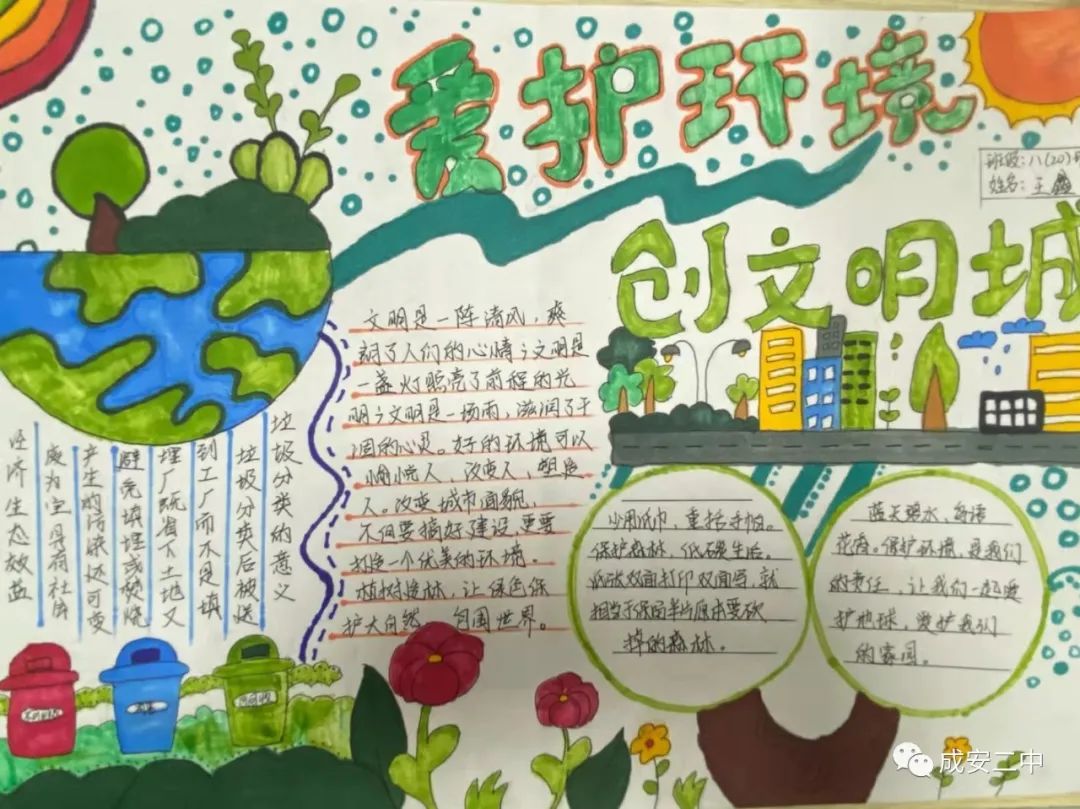 爱护环境
班级:八(20)班
姓名:王鑫
创文明城
文明是一阵清风,爽
朗了人们的心情;文明是
一盏灯照亮了前程的光
明;文明是一场雨,滋润了干
涸的心灵。好的环境可以
愉悦人,改变人,塑造
人。改变城市面貌,
不但要搞好建设,更要
打造一个优美的环境。
植树造林,让绿色保
护大自然 包围世界。
垃圾分类的意义
垃圾分类后被送
到工厂而不是填
埋厂既省下土地又
避免填埋或焚烧
产生的污染还可变
废为宝具有社会
经济生态效益
少用纸巾,重拾手帕。
保护森林,低碳生活。
纸张双面打印双面写,就
相当于保留半片原本要砍
掉的森林。
蓝天碧水,鸟语
花香。保护环境,是我们
的责任,让我们一起爱
护地球,爱护我们
的家园。
成安二中